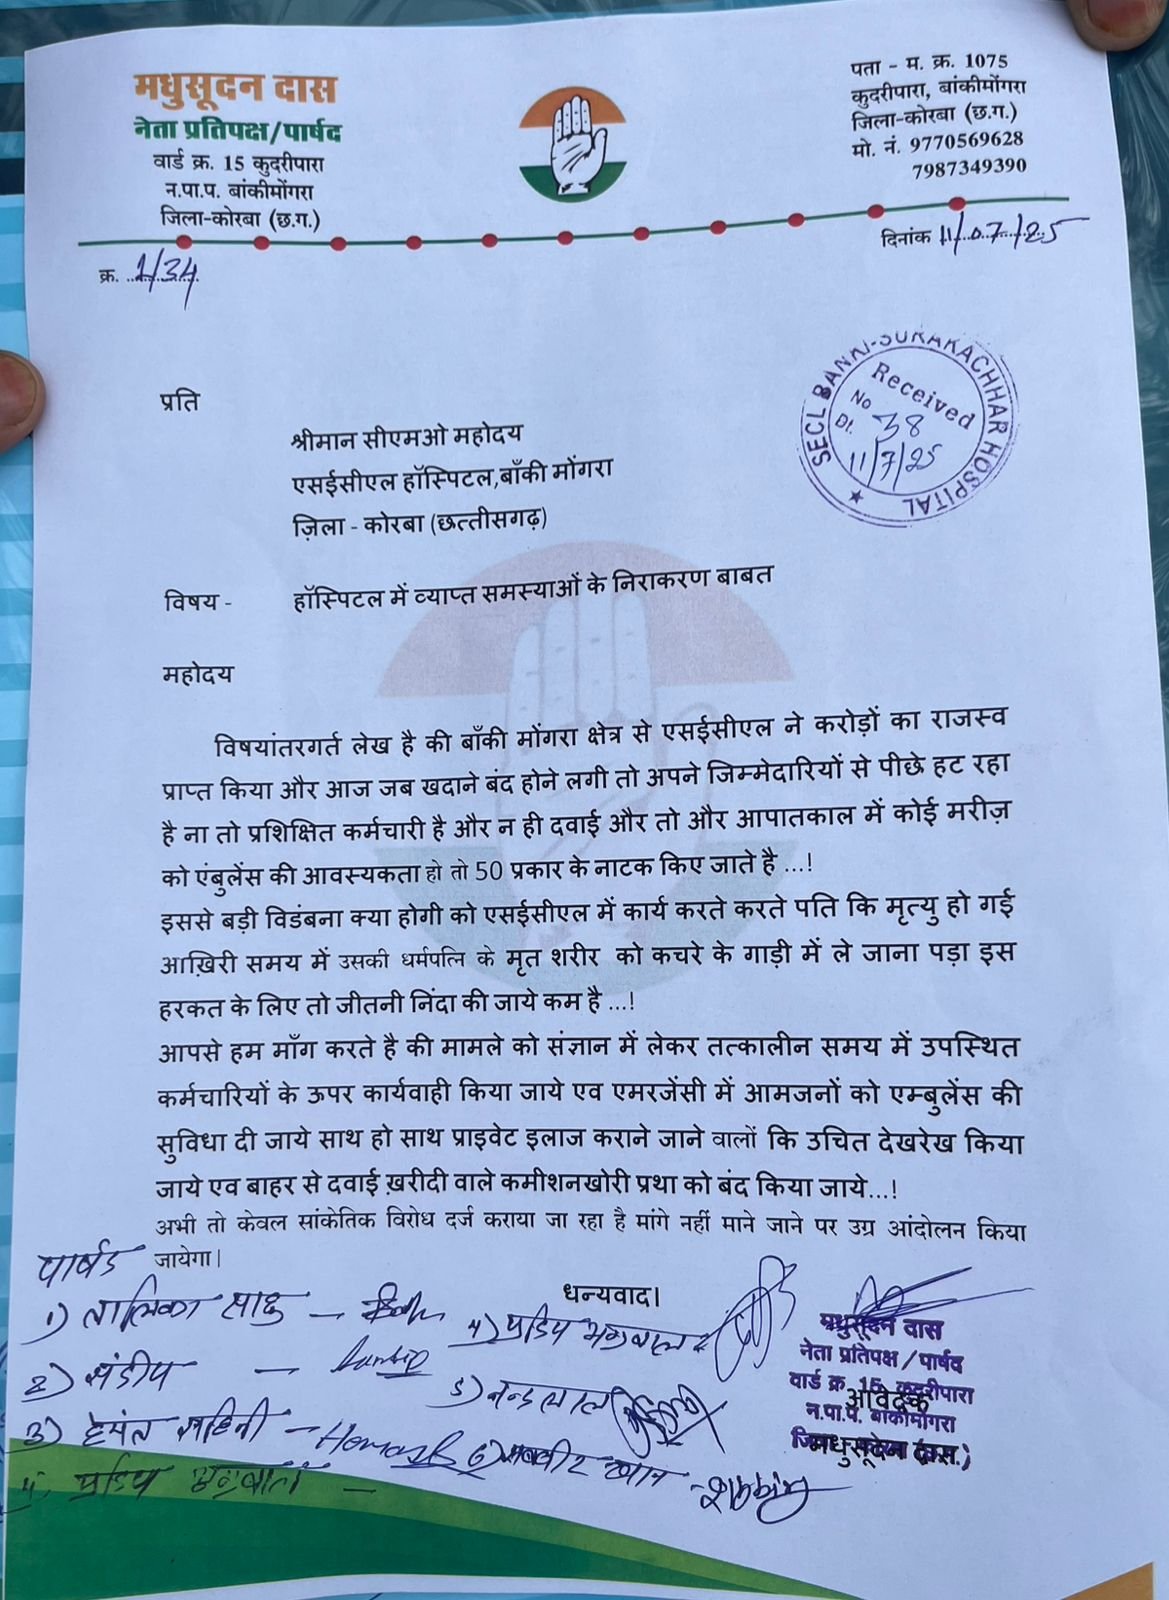 मधुसूदन दास
नेता प्रतिपक्ष/पार्षद
वार्ड क्र. 15 कुदरीपारा
न.पा.प. बांकीमोंगरा
जिला-कोरबा (छ.ग.)
पता - म. क्र. 1075
कुदरीपारा, बांकीमोंगरा
जिला-कोरबा (छ.ग.)
मो. नं. 9770569628
7987349390
क्र. 1/34
दिनांक 11/07/25
SECL BANKI-SURAKACHHAR HOSPITAL
Received
No 38
Dt. 11/7/25
प्रति
श्रीमान सीएमओ महोदय
एसईसीएल हॉस्पिटल,बाँकी मोंगरा
ज़िला - कोरबा (छत्तीसगढ़)
विषय - हॉस्पिटल में व्याप्त समस्याओं के निराकरण बाबत
महोदय
विषयांतरगर्त लेख है की बाँकी मोंगरा क्षेत्र से एसईसीएल ने करोड़ों का राजस्व
प्राप्त किया और आज जब खदाने बंद होने लगी तो अपने जिम्मेदारियों से पीछे हट रहा
है ना तो प्रशिक्षित कर्मचारी है और न ही दवाई और तो और आपातकाल में कोई मरीज़
को एंबुलेंस की आवस्यकता हो तो 50 प्रकार के नाटक किए जाते है ...!
इससे बड़ी विडंबना क्या होगी को एसईसीएल में कार्य करते करते पति कि मृत्यु हो गई
आख़िरी समय में उसकी धर्मपत्नि के मृत शरीर को कचरे के गाड़ी में ले जाना पड़ा इस
हरकत के लिए तो जीतनी निंदा की जाये कम है ...!
आपसे हम माँग करते है की मामले को संज्ञान में लेकर तत्कालीन समय में उपस्थित
कर्मचारियों के ऊपर कार्यवाही किया जाये एव एमरजेंसी में आमजनों को एम्बुलेंस की
सुविधा दी जाये साथ हो साथ प्राइवेट इलाज कराने जाने वालों कि उचित देखरेख किया
जाये एव बाहर से दवाई ख़रीदी वाले कमीशनखोरी प्रथा को बंद किया जाये...!
अभी तो केवल सांकेतिक विरोध दर्ज कराया जा रहा है मांगे नहीं माने जाने पर उग्र आंदोलन किया
जायेगा|
धन्यवाद|
पार्षद
1) तालिका साहु -
2) संदीप -
3) हेमंत साहिनी -
4) प्रदिप अग्रवाल -
4) प्रदिप अग्रवाल
5) नन्दलाल
6) खान -
मधुसूदन दास
नेता प्रतिपक्ष/पार्षद
वार्ड क्र. 15, कुदरीपारा
न.पा.प. बांकीमोंगरा
आवेदक
मधुसूदन दास